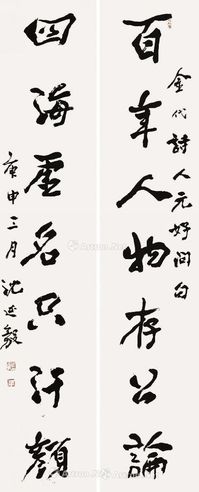 百年人物存公論
四海虛名只汗顏
金代詩人元好問句
庚申三月 沈延毅